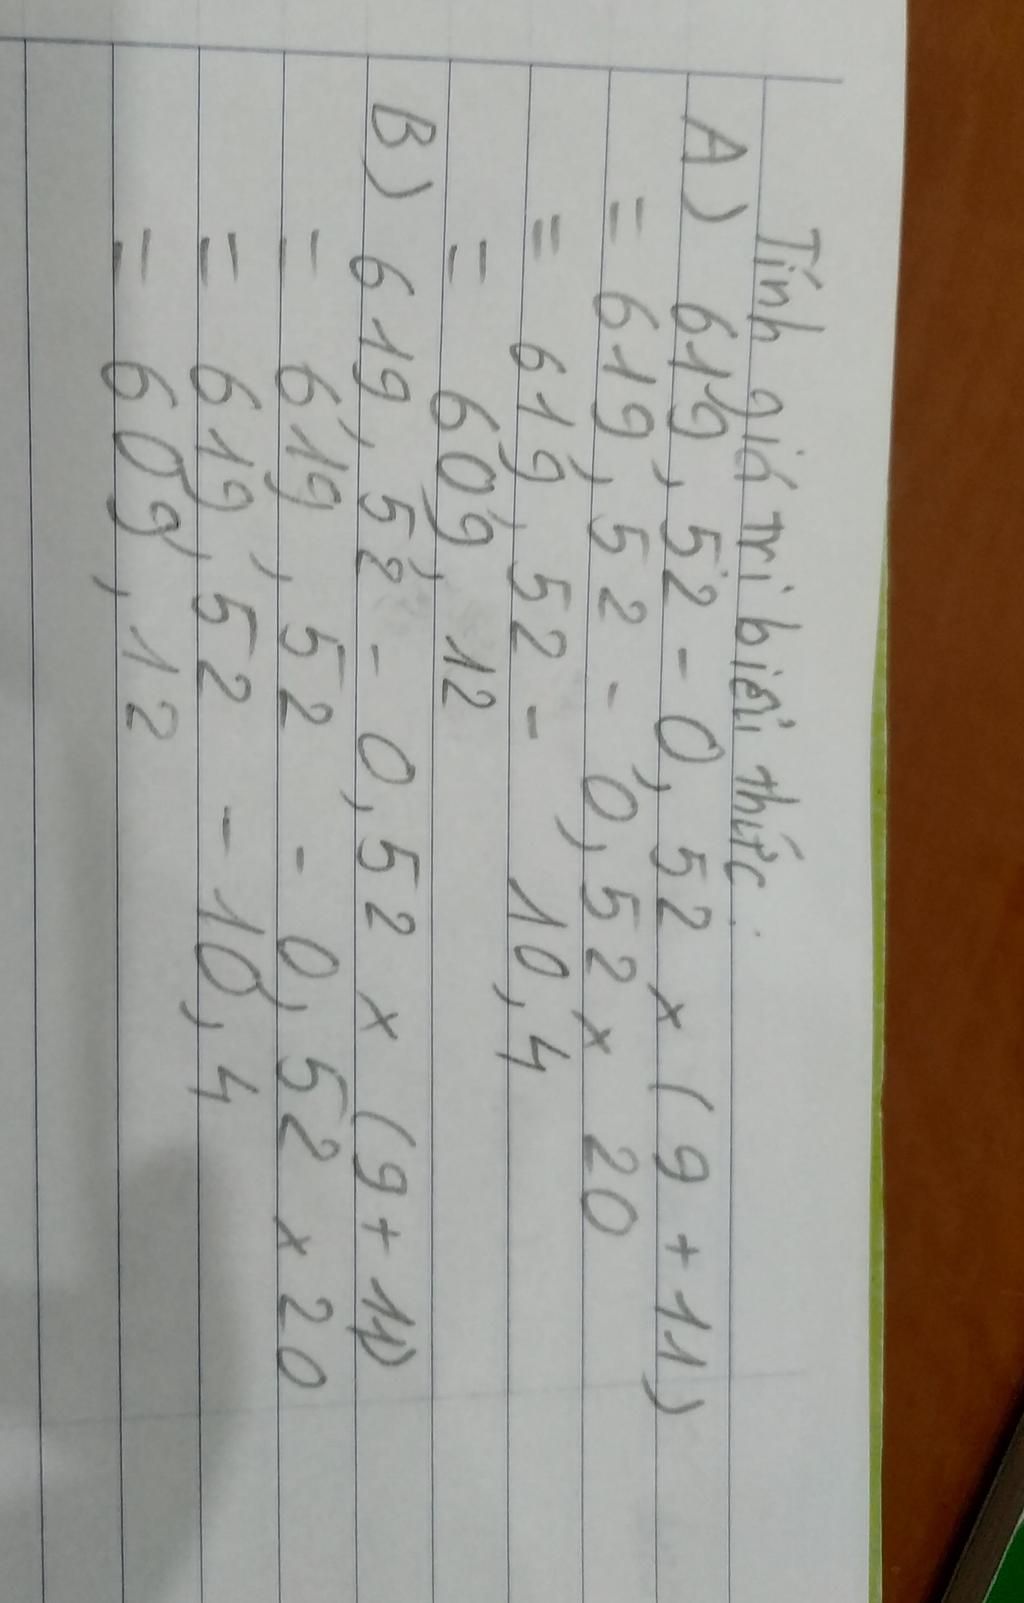 Tính giá trị biểu thức.
A) 619,52 - 0,52 x (9 + 11)
= 619,52 - 0,52 x 20
= 619,52 - 10,4
= 609,12
B) 619,52 - 0,52 x (9 + 11)
= 619,52 - 0,52 x 20
= 619,52 - 10,4
= 609,12